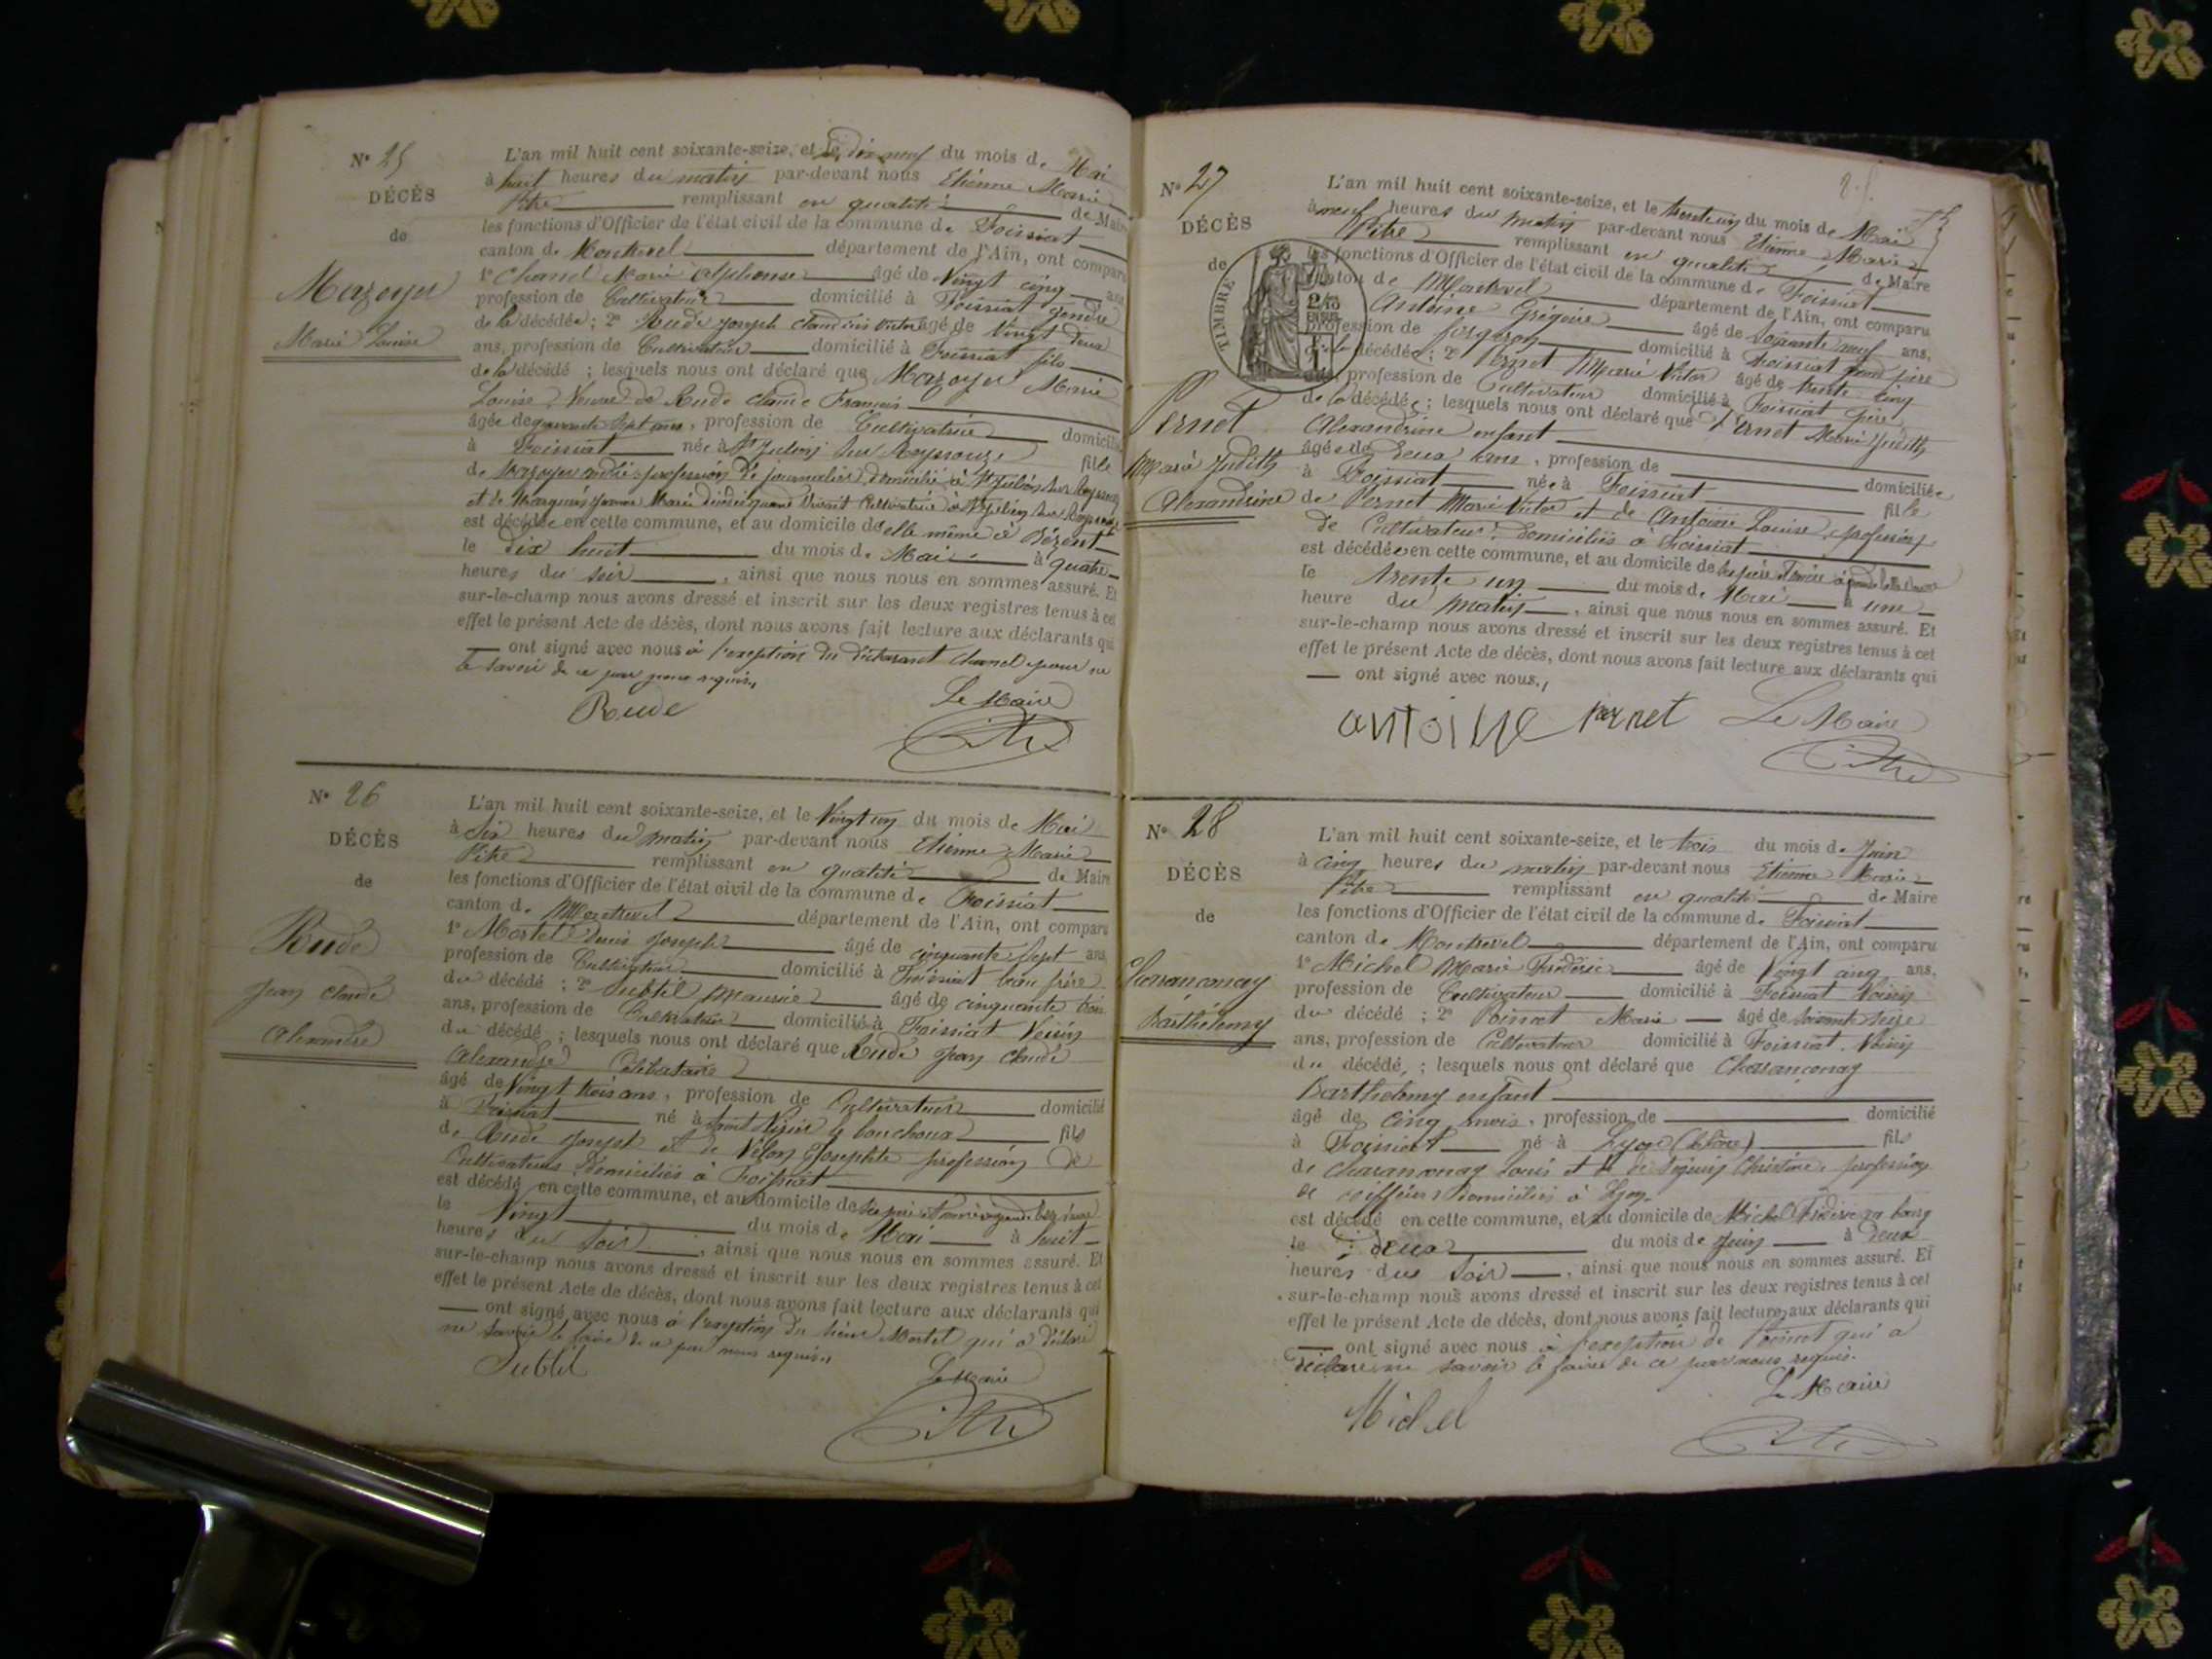 N° 25
DÉCÈS
de
Mazoyer
Marie Louise
L'an mil huit cent soixante-seize, et le dix neuf du mois de Mai
à huit heures du matin par-devant nous Etienne Marie
Pitre remplissant en qualité de Maire
les fonctions d'Officier de l'état civil de la commune de Foissiat
canton de Montrevel département de l'Ain, ont comparu
1° Chanel Marie Alphonse âgé de Vingt cinq ans
profession de Cultivateur domicilié à Foissiat gendre
de la décédée ; 2° Rude Joseph Claudius Victor âgé de Vingt deux
ans, profession de Cultivateur domicilié à Foissiat fils
de la décédé ; lesquels nous ont déclaré que Mazoyer Marie
Louise, Veuve de Rude Claude François
âgée de quarante sept ans, profession de Cultivatrice domicilié
à Foissiat née à St Julien sur Reyssouze fille
de Mazoyer profession de journalier, domicilié à St Julien sur Reyssouze
et de Marie décédée quand vivait Cultivatrice à St Julien sur Reyssouze
est décédée en cette commune, et au domicile d'elle même à
le dix huit du mois de Mai à quatre
heures du soir, ainsi que nous nous en sommes assuré. Et
sur-le-champ nous avons dressé et inscrit sur les deux registres tenus à cet
effet le présent Acte de décès, dont nous avons fait lecture aux déclarants qui
ont signé avec nous à l'exception du déclarant Chanel pour ne
le savoir de ce par nous requis
Rude Le Maire
Pitre
N° 26
DÉCÈS
de
Rude
Jean Claude
Alexandre
L'an mil huit cent soixante-seize, et le Vingt un du mois de Mai
à Six heures du matin par-devant nous Etienne Marie
Pitre remplissant en qualité de Maire
les fonctions d'Officier de l'état civil de la commune de Foissiat
canton de Montrevel département de l'Ain, ont comparu
1° Mortel Denis Joseph âgé de cinquante sept ans
profession de Cultivateur domicilié à Foissiat beau frère
du décédé ; 2° Subtil Maurice âgé de cinquante trois
ans, profession de Cultivateur domicilié à Foissiat Voisin
du décédé ; lesquels nous ont déclaré que Rude Jean Claude
Alexandre Célibataire
âgé de Vingt trois ans, profession de Cultivateur domicilié
à Foissiat né à Saint Nizier le bouchoux fils
de Rude Joseph et de Velon Josephte profession de
Cultivateurs domiciliés à Foissiat
est décédé en cette commune, et au domicile de ses père et mère
le Vingt du mois de Mai à huit
heures du soir, ainsi que nous nous en sommes assuré. Et
sur-le-champ nous avons dressé et inscrit sur les deux registres tenus à cet
effet le présent Acte de décès, dont nous avons fait lecture aux déclarants qui
ont signé avec nous à l'exception du sieur Mortel qui a déclaré
ne savoir le faire de ce par nous requis
Subtil Le Maire
Pitre
N° 27
DÉCÈS
de
TIMBRE
2/10
EN SUS
Pernet
Marie Judith
Alexandrine
L'an mil huit cent soixante-seize, et le trente un du mois de Mai
à neuf heures du matin par-devant nous Etienne Marie
Pitre remplissant en qualité de Maire
les fonctions d'Officier de l'état civil de la commune de Foissiat
canton de Montrevel département de l'Ain, ont comparu
Antoine Grégoire âgé de soixante neuf ans,
profession de forgeron domicilié à Foissiat grand père
de la décédée ; 2° Pernet Marie Victor âgé de trente cinq
ans, profession de Cultivateur domicilié à Foissiat père
de la décédée ; lesquels nous ont déclaré que Pernet Marie Judith
Alexandrine enfant
âgée de Deux ans, profession de domiciliée
à Foissiat née à Foissiat fille
de Pernet Marie Victor et de Antoine Louise, profession
de Cultivateurs domiciliés à Foissiat
est décédée en cette commune, et au domicile de ses père et mère
le trente un du mois de Mai à une
heure du matin, ainsi que nous nous en sommes assuré. Et
sur-le-champ nous avons dressé et inscrit sur les deux registres tenus à cet
effet le présent Acte de décès, dont nous avons fait lecture aux déclarants qui
ont signé avec nous.
antoine pernet Le Maire
Pitre
N° 28
DÉCÈS
de
Charanconay
Barthélemy
L'an mil huit cent soixante-seize, et le trois du mois de Juin
à cinq heures du matin par-devant nous Etienne Marie
Pitre remplissant en qualité de Maire
les fonctions d'Officier de l'état civil de la commune de Foissiat
canton de Montrevel département de l'Ain, ont comparu
1° Michel Marie Frédéric âgé de Vingt cinq ans,
profession de Cultivateur domicilié à Foissiat Voisin
du décédé ; 2° Poinset Marie âgé de soixante seize
ans, profession de Cultivateur domicilié à Foissiat Voisin
du décédé, ; lesquels nous ont déclaré que Charançonay
Barthelemy enfant
âgé de cinq mois, profession de domicilié
à Foissiat né à Lyon (Rhône) fils
de Charanconay Louis et de Christine profession
de coiffeurs domiciliés à Lyon
est décédé en cette commune, et au domicile de Michel Frédéric au bourg
le deux du mois de Juin à deux
heures du soir, ainsi que nous nous en sommes assuré. Et
sur-le-champ nous avons dressé et inscrit sur les deux registres tenus à cet
effet le présent Acte de décès, dont nous avons fait lecture aux déclarants qui
ont signé avec nous à l'exception de Poinset qui a
déclaré ne savoir le faire de ce par nous requis.
Michel Le Maire
Pitre